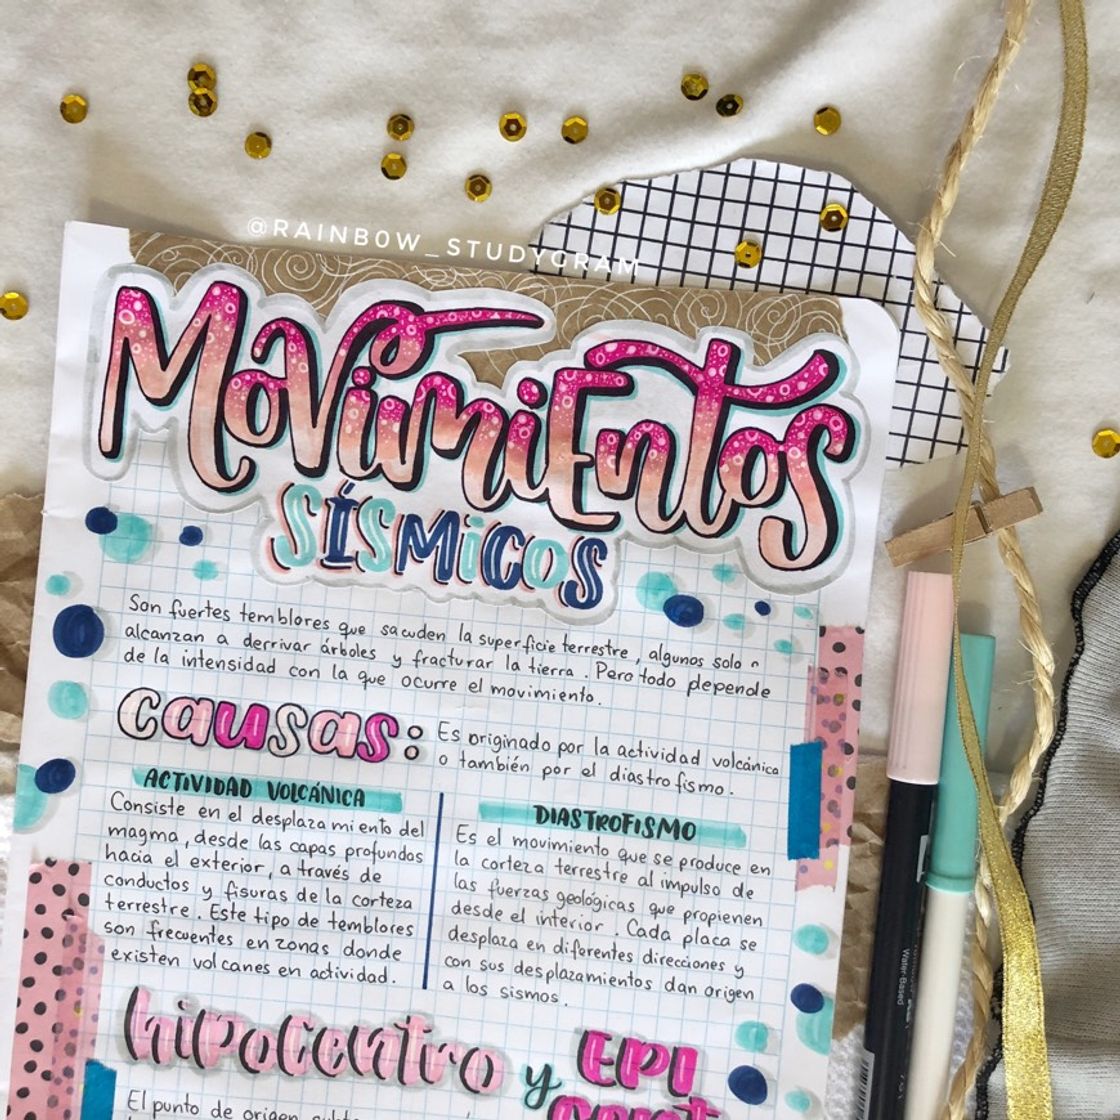 @RAINB0W_STUDYGRAM
MoviMiEntos
SÍSMICOS
Son fuertes temblores que sacuden la superficie terrestre, algunos solo
alcanzan a derrivar árboles y fracturar la tierra. Pero todo depende
de la intensidad con la que ocurre el movimiento.
causas: Es originado por la actividad volcánica
o también por el diastrofismo.
ACTIVIDAD VOLCÁNICA
Consiste en el desplazamiento del
magma, desde las capas profundas
hacia el exterior, a través de
conductos y fisuras de la corteza
terrestre. Este tipo de temblores
son frecuentes en zonas donde
existen volcanes en actividad.
DIASTROFISMO
Es el movimiento que se produce en
la corteza terrestre al impulso de
las fuerzas geológicas que propienen
desde el interior. Cada placa se
desplaza en diferentes direcciones y
con sus desplazamientos dan origen
a los sismos.
hipocentro y EPI
El punto de origen
Water-Based